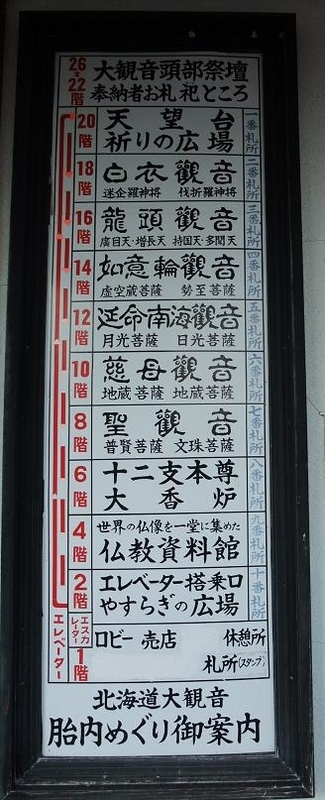 26〜22階 大観音頭部祭壇
奉納者お札祀ところ
20階 天望台 一番札所
祈りの広場
18階 白衣觀音 二番札所
迷企羅神将 伐折羅神将
16階 龍頭觀音 三番札所
廣目天・増長天 持国天・多聞天
14階 如意輪觀音 四番札所
虚空蔵菩薩 勢至菩薩
12階 延命南海觀音 五番札所
月光菩薩 日光菩薩
10階 慈母觀音 六番札所
地蔵菩薩 地蔵菩薩
8階 聖觀音 七番札所
普賢菩薩 文珠菩薩
6階 十二支本尊 八番札所
大香炉
4階 世界の仏像を一堂に集めた 九番札所
仏教資料館
2階 エレベーター搭乗口 十番札所
やすらぎの広場
エレベーター
エスカレーター
1階 ロビー 売店 休憩所
札所(スタンプ)
北海道大観音
胎内めぐり御案内